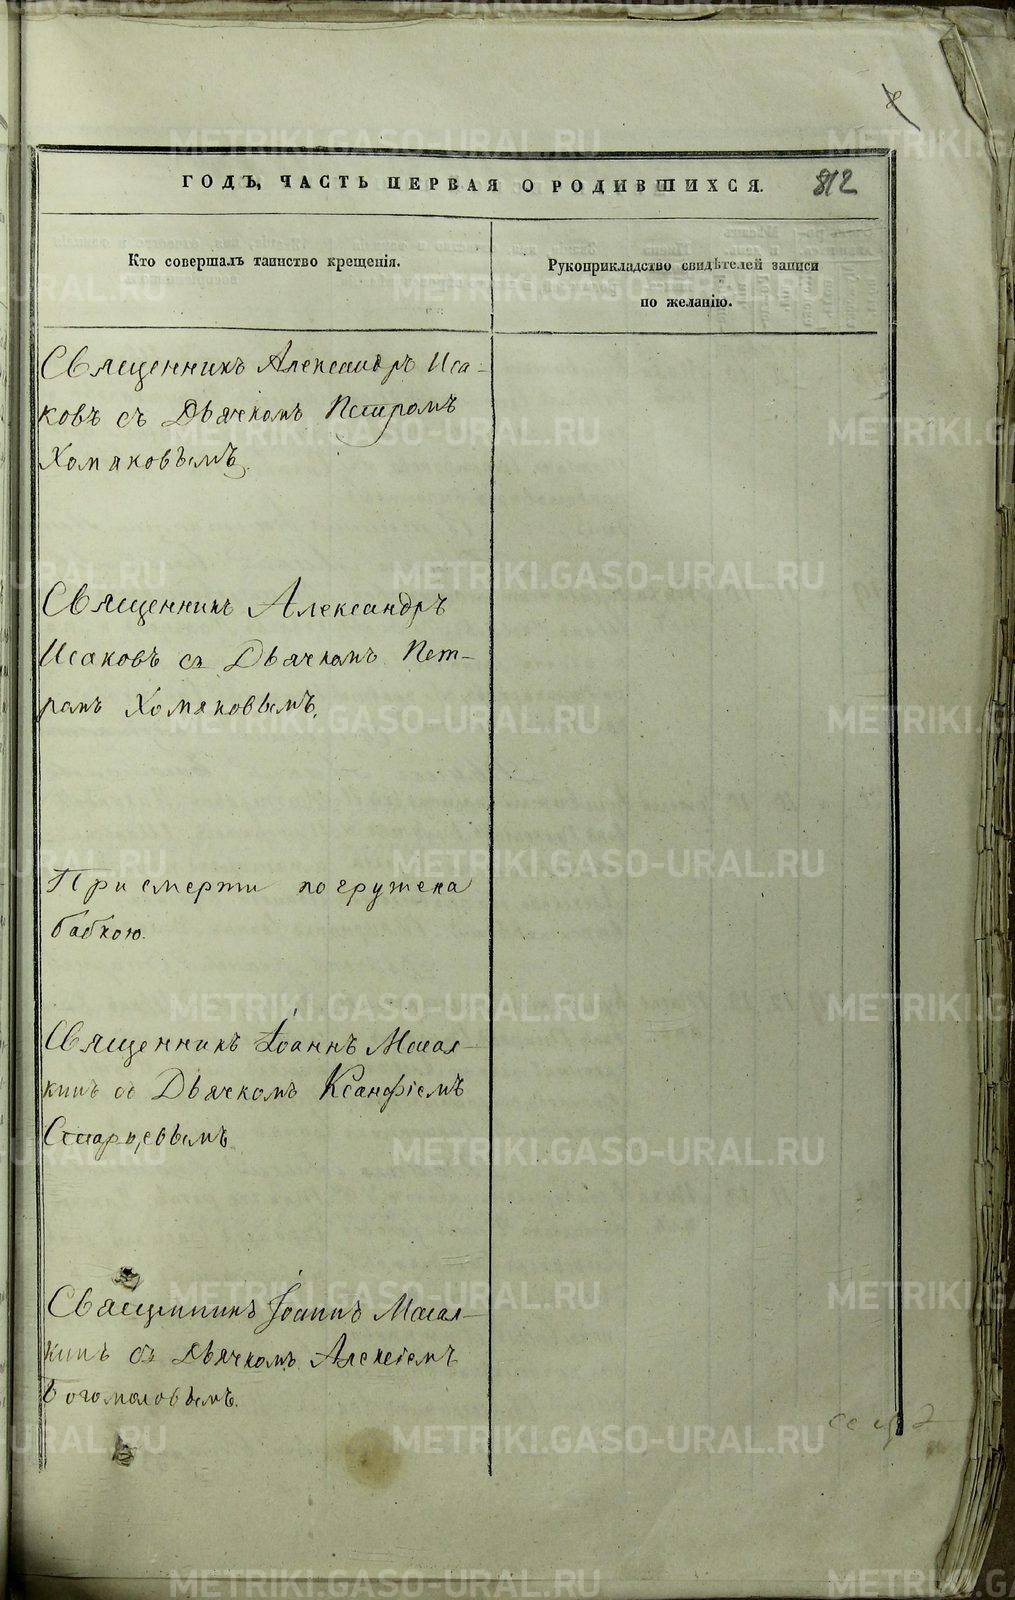 ГОДЪ, ЧАСТЬ ПЕРВАЯ О РОДИВШИХСЯ. 812
Кто совершалъ таинство крещенія.
Рукоприкладство свидѣтелей записи
по желанію.
Священникъ Александръ Иса-
ковъ съ Дьячкомъ Петромъ
Хомяковымъ.
Священникъ Александръ
Исаковъ съ Дьячкомъ Пет-
ромъ Хомяковымъ.
При смерти погружена
бабкою.
Священникъ Іоаннъ Масал-
кинъ съ Дьячкомъ Ксанфіемъ
Старцевымъ
Священникъ Іоаннъ Масал-
кинъ съ Дьячкомъ Алексіемъ
Богомоловымъ.
METRIKI.GASO-URAL.RU